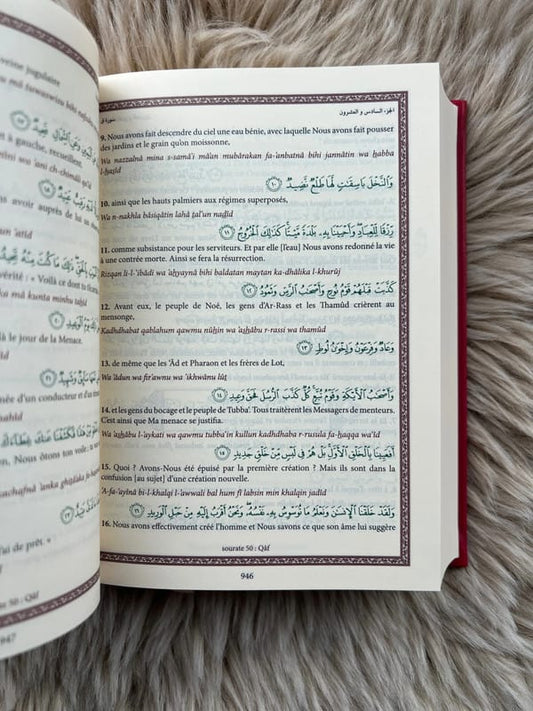 سورة ق
الجزء السادس و العشرون
9. Nous avons fait descendre du ciel une eau bénie, avec laquelle Nous avons fait pousser
des jardins et le grain qu'on moissonne,
Wa nazzalnā mina s-samā'i mā'an mubārakan fa-anbatnā bihi jannātin wa ḥabba
l-ḥaṣīd
وَالنَّخْلَ بَاسِقَاتٍ لَهَا طَلْعٌ نَضِيدٌ ١٠
10. ainsi que les hauts palmiers aux régimes superposés,
Wa n-nakhla bāsiqātin lahā ṭal'un naḍīd
رِزْقًا لِلْعِبَادِ وَأَحْيَيْنَا بِهِ بَلْدَةً مَيْتًا كَذَلِكَ الْخُرُوجُ ١١
11. comme subsistance pour les serviteurs. Et par elle [l'eau] Nous avons redonné la vie
à une contrée morte. Ainsi se fera la résurrection.
Rizqan li-l-'ibādi wa aḥyaynā bihi baldatan maytan ka-dhālika l-khurūj
كَذَّبَتْ قَبْلَهُمْ قَوْمُ نُوحٍ وَأَصْحَابُ الرَّسِّ وَثَمُودُ ١٢
12. Avant eux, le peuple de Noé, les gens d'Ar-Rass et les Thamûd crièrent au
mensonge,
Kadhdhabat qablahum qawmu nūḥin wa aṣḥābu r-rassi wa thamūd
وَعَادٌ وَفِرْعَوْنُ وَإِخْوَانُ لُوطٍ ١٣
13. de même que les 'Âd et Pharaon et les frères de Lot,
Wa 'ādun wa fir'awnu wa 'ikhwānu lūṭ
وَأَصْحَابُ الْأَيْكَةِ وَقَوْمُ تُبَّعٍ كُلٌّ كَذَّبَ الرُّسُلَ فَحَقَّ وَعِيدِ ١٤
14. et les gens du bocage et le peuple de Tubba'. Tous traitèrent les Messagers de menteurs.
C'est ainsi que Ma menace se justifia.
Wa aṣḥābu l-aykati wa qawmu tubba'in kullun kadhdhaba r-rusula fa-ḥaqqa wa'īd
أَفَعَيِينَا بِالْخَلْقِ الْأَوَّلِ بَلْ هُمْ فِي لَبْسٍ مِنْ خَلْقٍ جَدِيدٍ ١٥
15. Quoi ? Avons-Nous été épuisé par la première création ? Mais ils sont dans la
confusion [au sujet] d'une création nouvelle.
'A-fa-'ayīnā bi-l-khalqi l-'awwali bal hum fī labsin min khalqin jadīd
وَلَقَدْ خَلَقْنَا الْإِنْسَانَ وَنَعْلَمُ مَا تُوَسْوِسُ بِهِ نَفْسُهُ وَنَحْنُ أَقْرَبُ إِلَيْهِ مِنْ حَبْلِ الْوَرِيدِ ١٦
16. Nous avons effectivement créé l'homme et Nous savons ce que son âme lui suggère
sourate 50 : Qâf
946
veine jugulaire
à gauche, recueillent.
avoir auprès de lui un
vérité : « Voilà ce dont tu
mā kunta minhu taḥīd
le jour de la Menace.
d'un conducteur et d'un
'ai de prêt. »
50 : Qâf
947